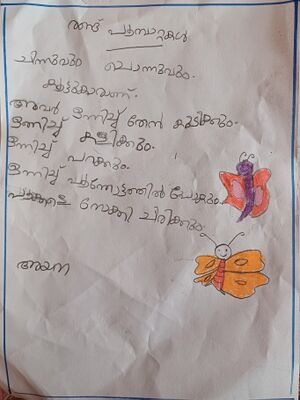 രണ്ട് പൂമ്പാറ്റകൾ
ചിന്നുവും പൊന്നുവും
കൂട്ടുകാരാണ്.
അവർ ഒന്നിച്ച് തേൻ കുടിക്കും.
ഒന്നിച്ച് കളിക്കും.
ഒന്നിച്ച് പറക്കും.
ഒന്നിച്ച് പൂന്തോട്ടത്തിൽ പോകും.
നോക്കി ചിരിക്കും.
അയന